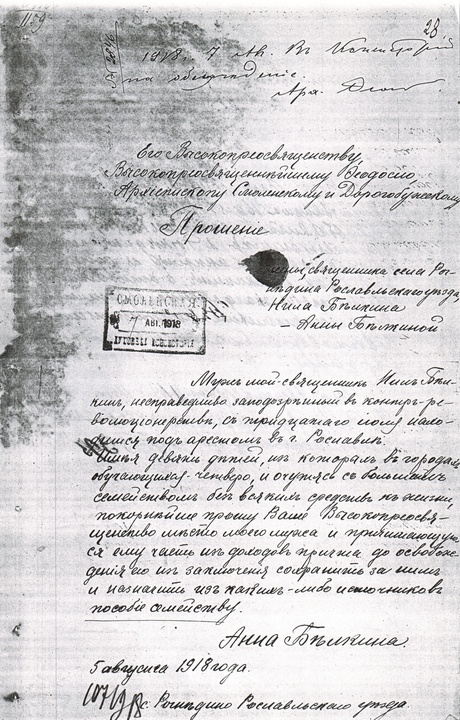 1159
28
№ 2246
1918. 7 Ав. Въ Консисторію
на обсужденіе.
Арх. Ѳеод
Его Высокопреосвященству,
Высокопреосвященнѣйшему Ѳеодосію,
Архіепископу Смоленскому и Дорогобужскому
Прошеніе
жены священника села Рог-
нѣдина Рославльскаго уѣзда,
Нила Бѣлкина
– Анны Бѣлкиной
СМОЛЕНСКАЯ
7 АВГ. 1918
ДУХОВНАЯ КОНСИСТОРІЯ
Мужъ мой-священникъ Нилъ Бѣл-
кинъ, несправедливо заподозрѣнный въ контръ-ре-
волюціонерствѣ, съ тридцатаго іюля нахо-
дится подъ арестомъ въ г. Рославлѣ.
Имѣя девять дѣтей, изъ которыхъ въ городахъ
обучающихся-четверо, и очутясь съ большимъ
семействомъ безъ всякихъ средствъ къ жизни,
покорнѣйше прошу Ваше Высокопреосвя-
щенство мѣсто моего мужа и причитающую-
ся ему часть изъ доходовъ причта до освобож-
денія его изъ заключенія сохранить за нимъ
и назначить изъ какихъ-либо источниковъ
пособіе семейству.
Анна Бѣлкина.
5 августа 1918 года.
с. Рогнѣдино Рославльскаго уѣзда.